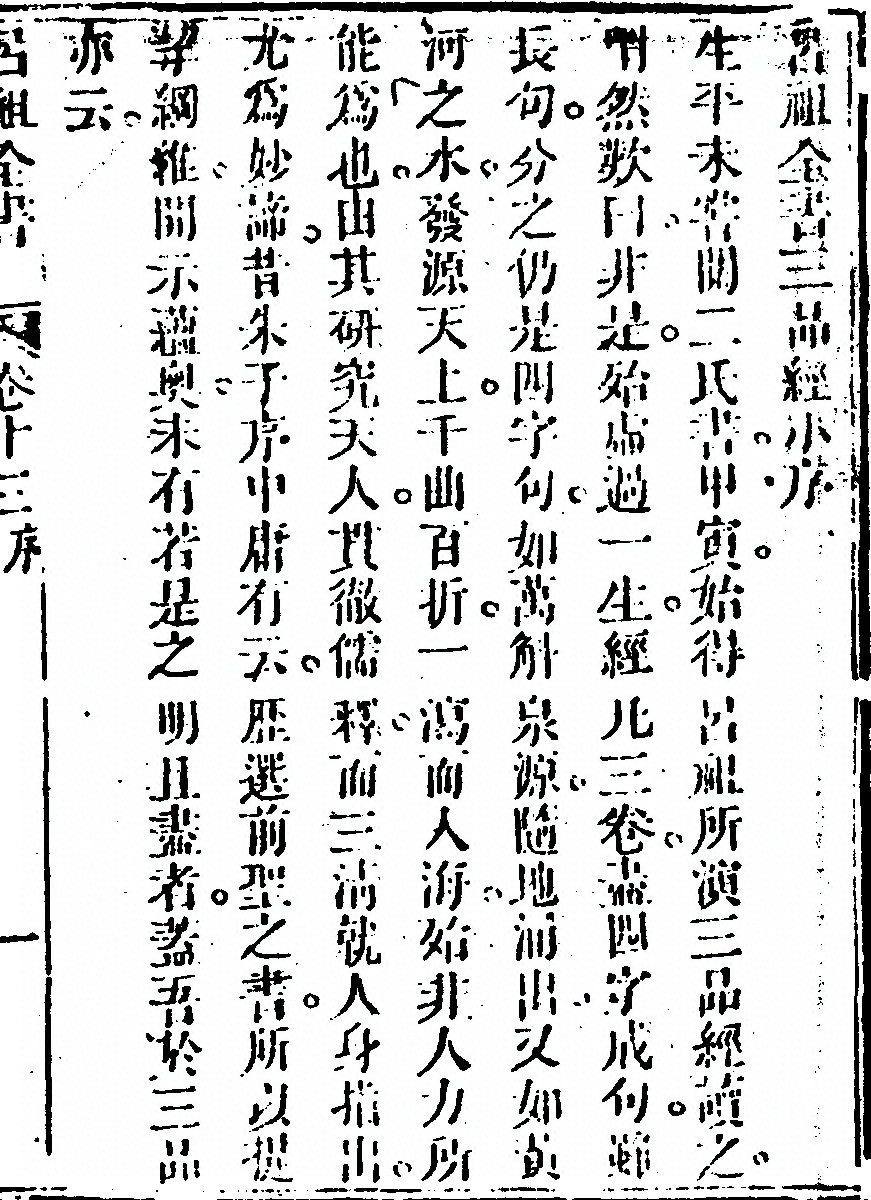 呂祖全書三品經小序
生平未嘗閱二氏書甲寅始得呂祖所演三品經讀之
喟然歎曰非是始虛過一生經凡三卷盡四字成句雖
長句分之仍是四字句如萬斛泉源隨地涌出又如黃
河之水發源天上千曲百折一瀉而入海始非人力所
能為也由其研究天人貫徹儒釋而三清就人身指出
尤為妙諦昔朱子序中庸有云歷選前聖之書所以提
挈綱維開示蘊奧未有若是之明且盡者蓋吾於三品
亦云
呂祖全書 卷十三序 一